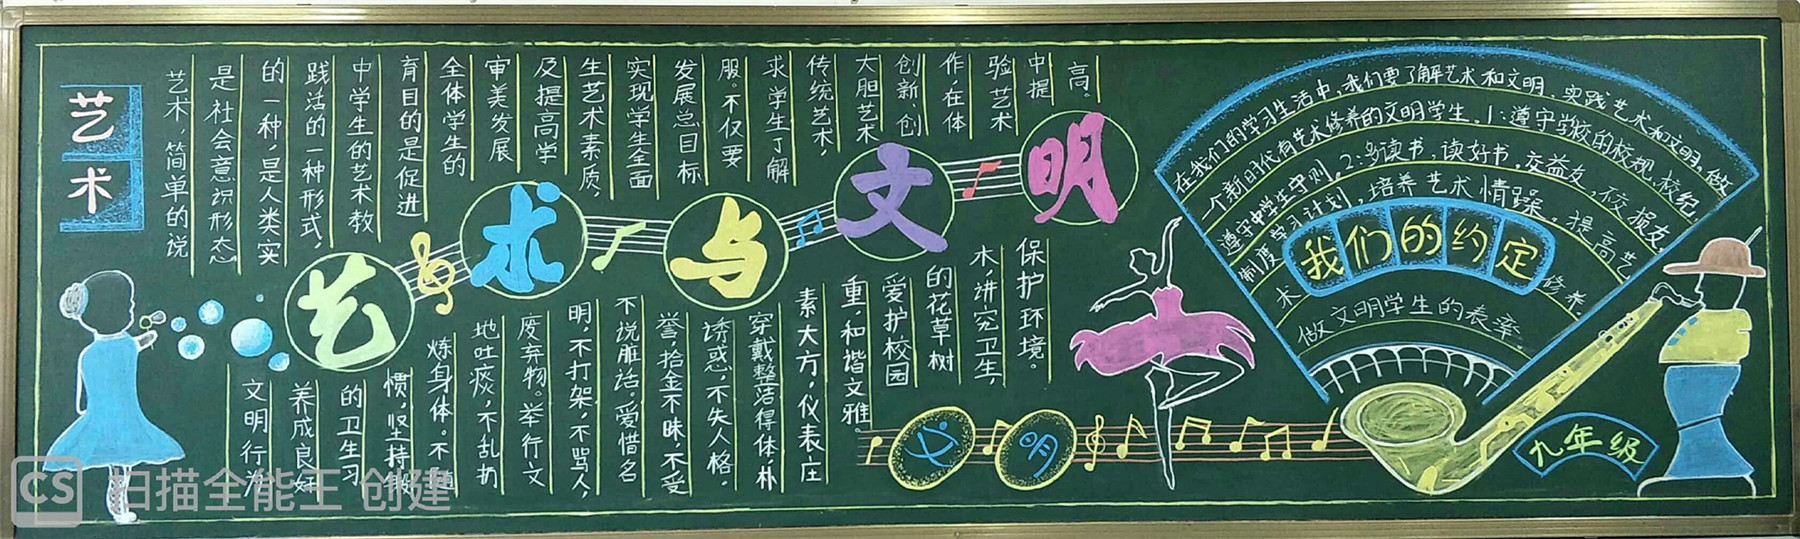 艺术
艺术,简单的说
是社会意识形态
的一种,是人类实
践活的一种形式,
中学生的艺术教
育目的是促进
全体学生的
审美发展
及提高学
生艺术素质,
实现学生全面
发展总目标
服。不仅要
求学生了解
传统艺术,
大胆艺术
创新,创
作,在体
验艺术
中提
高。
艺术与文明
文明行为
养成良好
的卫生习
惯,坚持锻
炼身体,不随
地吐痰,不乱扔
废弃物。举行文
明,不打架,不骂人,
不说脏话。爱惜名
誉,拾金不昧,不受
诱惑,不失人格。
穿戴整洁得体朴
素大方,仪表庄
重,和谐文雅。
爱护校园
的花草树
木,讲究卫生,
保护环境。
文明
在我们的学习生活中,我们要了解艺术和文明,实践艺术和文明,做
一个新时代有艺术修养的文明学生。1:遵守学校的校规,校纪,
遵守中学生守则。2:多读书,读好书,交益友,不交损友
制度学习计划,培养艺术情躁,提高艺
术修养.
我们的约定
做文明学生的表率
九年级
CS 扫描全能王 创建